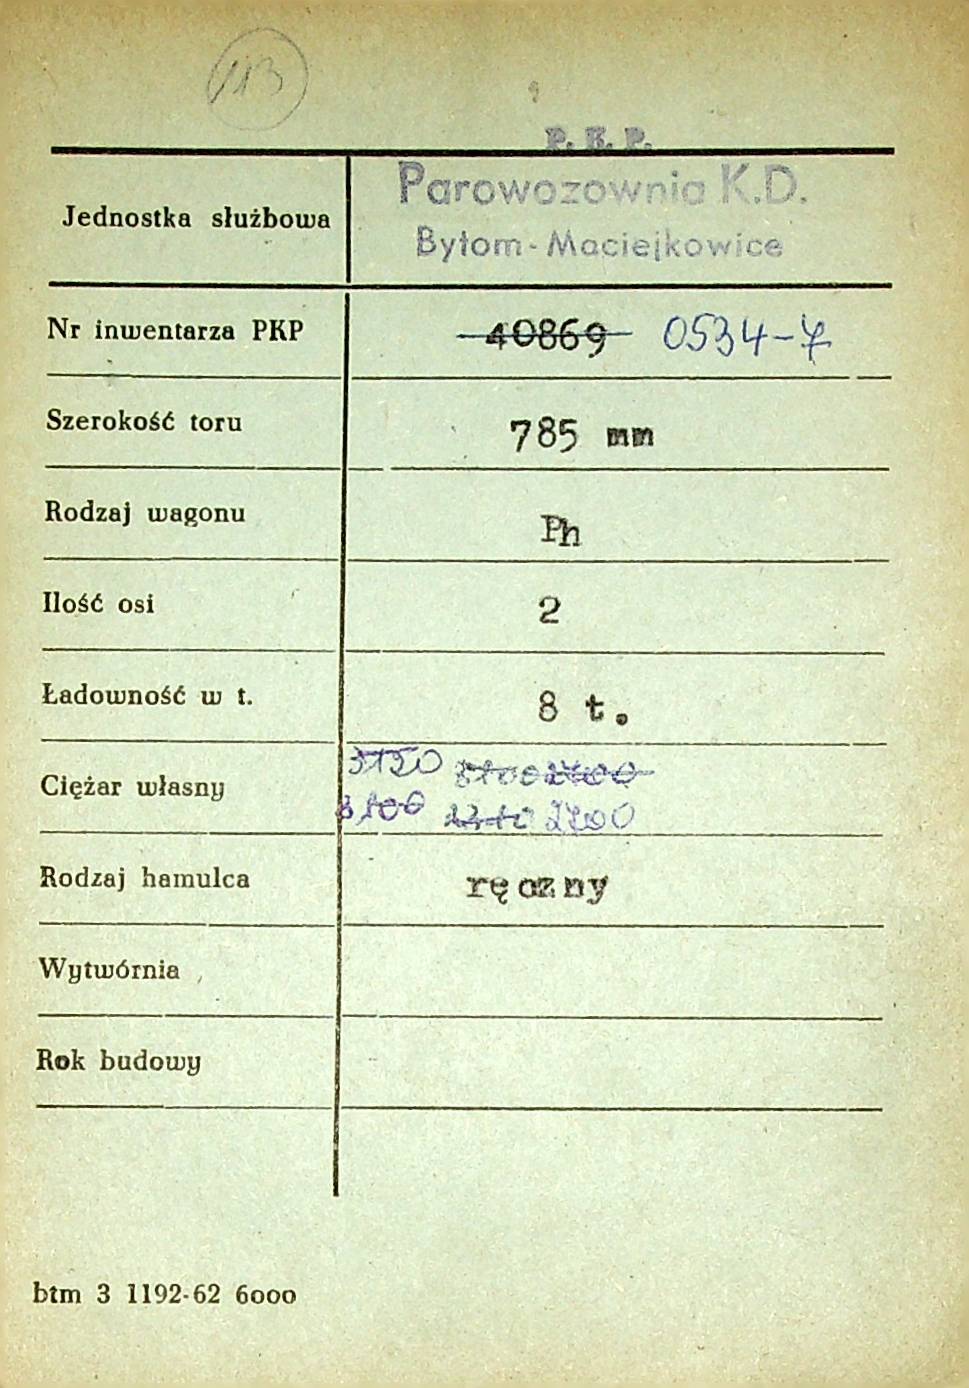 113
P. K. P.
Parowozownia K.D.
Bytom-Maciejkowice
Jednostka służbowa
Nr inwentarza PKP 40869 0534-7
Szerokość toru 785 mm
Rodzaj wagonu Ph
Ilość osi 2
Ładowność w t. 8 t.
3150
Ciężar własny
3100 2700
Rodzaj hamulca ręczny
Wytwórnia
Rok budowy
btm 3 1192-62 6000